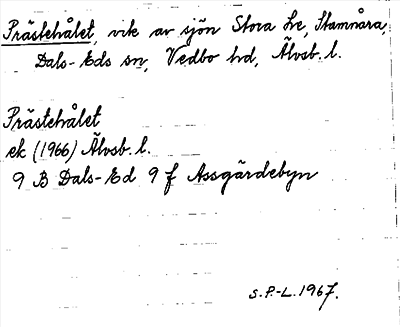 Prästehålet, vik av sjön Stora Le, Stamnåra,
Dals-Eds sn, Vedbo hd, Älvsb. l.
Prästehålet
ek (1966) Älvsb. l.
9 B Dals-Ed 9 f Assgärdebyn
S.P.-L. 1967.